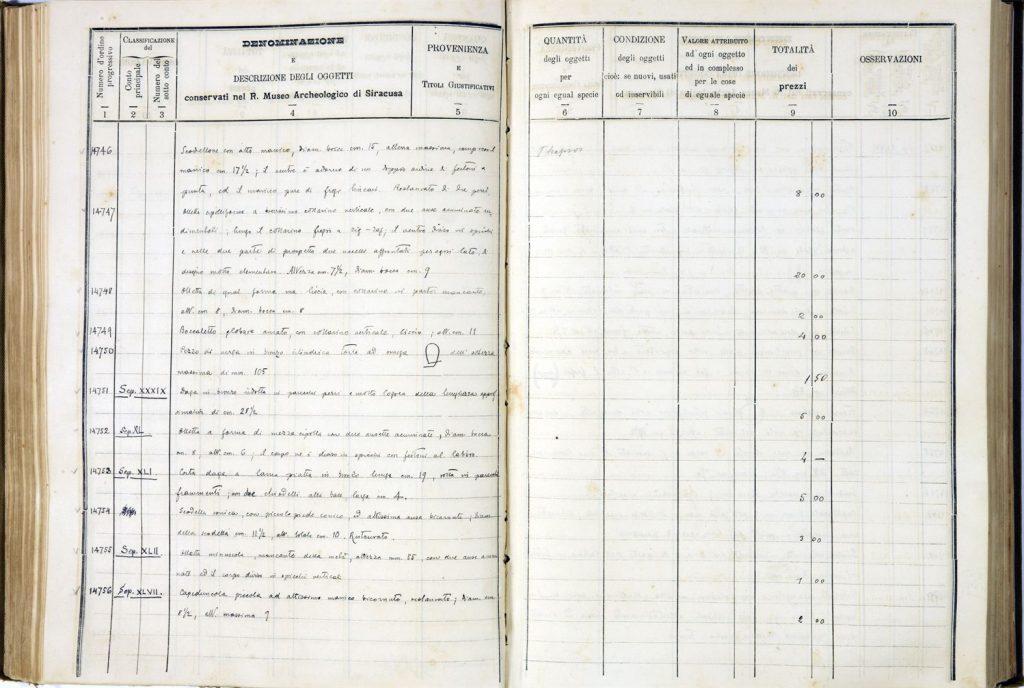 Numero d'ordine progressivo
CLASSIFICAZIONE del
Conto principale
Numero del sotto conto
DENOMINAZIONE
E
DESCRIZIONE DEGLI OGGETTI
conservati nel R. Museo Archeologico di Siracusa
PROVENIENZA
E
TITOLI GIUSTIFICATIVI
QUANTITÀ
degli oggetti
per
ogni egual specie
CONDIZIONE
degli oggetti
cioè: se nuovi, usati
od inservibili
VALORE ATTRIBUITO
ad ogni oggetto
ed in complesso
per le cose
di eguale specie
TOTALITÀ
dei
prezzi
OSSERVAZIONI
1 2 3 4 5 6 7 8 9 10
14746 Scodellone con alto manico, diam. bocca cm. 15, altezza massima, compreso il Thapsos
manico cm. 17 1/2; il ventre è adorno di un fregio di festoni a
punta, ed il manico pure di fregi lineari. Restaurato 8 00
14747 Olletta a collarino verticale, con due anse acuminate
; lungo il collarino fregio a zig-zag; il ventre diviso in spicchi
e nelle due parti di prospetto due uccelli affrontati per ogni lato, di
disegno molto elementare. Altezza cm. 7 1/2, diam. bocca cm. 9 20 00
14748 Olletta di egual forma ma liscia, con collarino in parte mancante,
alt. cm. 8, diam. bocca cm. 8 2 00
14749 Boccaletto globare ansato, con collarino verticale, liscio; alt. cm. 11 4 00
14750 Pezzo di verga in bronzo cilindrica torta ad omega dell'altezza
massima di mm. 105 1 50
14751 Sep. XXXIX Daga in bronzo ridotta in parecchi pezzi e molto logora della lunghezza approssimativa di cm. 28 1/2 5 00
14752 Sep. XL Olletta a forma di mezza cipolla con due ansette acuminate, diam. bocca
cm. 8, alt. cm. 6; il corpo ne è diviso in spicchi con festoni al labbro. 4 —
14753 Sep. XLI. Corta daga a lama piatta in bronzo lunga cm. 19, rotta in parecchi
frammenti; con due chiodelli alla base larga cm. 5 00
14754 Scodella conica, con piccolo piede conico, ed altissima ansa bicornute; Diam.
della scodella cm. 11 1/2, alt. totale cm. 10. Restaurato. 3 00
14755 Sep. XLII Olletta minuscola, mancante della metà, altezza mm. 55, con due anse
ed il corpo diviso in spicchi verticali 1 00
14756 Sep. XLVII. Capeduncola piccola ad altissimo manico bicornuto, restaurata; Diam. cm.
8 1/2, alt. massima 9 2 00